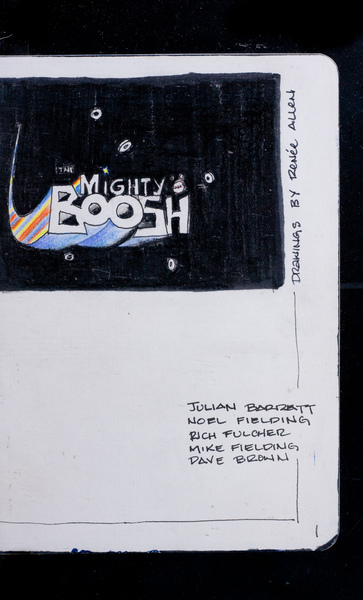 THE
MIGHTY
BOOSH
DRAWINGS BY RENÉE ALLEN
JULIAN BARRATT
NOEL FIELDING
RICH FULCHER
MIKE FIELDING
DAVE BROWN
1